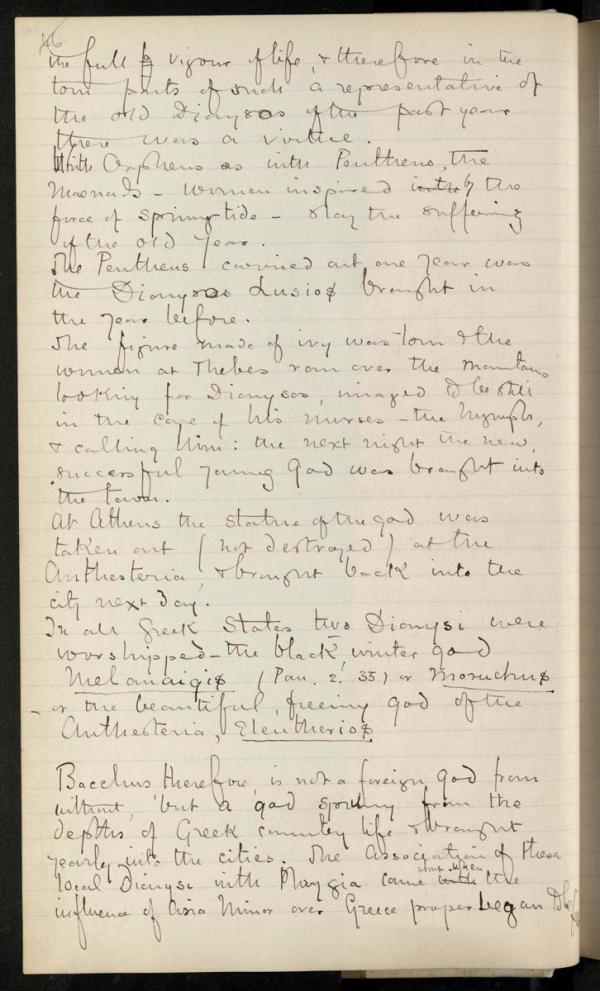 46
the full vigour of life, & therefore in the
torn parts of such a representative of
the old Dionysos of the past year
there was a virtue.
With Orpheus as with Pentheus, the
Maenads - women inspired by the
force of springtide - slay the suffering
of the old year.
The Pentheus carried out one year was
the Dionysos Lusios brought in
the year before.
The figure made of ivy was torn & the
women at Thebes ran over the mountains
looking for Dionysos, imaged to be still
in the care of his nurses - the Nymphs,
& calling him: the next night the new,
successful young God was brought into
the town.
At Athens the statue of the god was
taken out (not destroyed) at the
Anthesteria, & brought back into the
city next day.
In all Greek States two Dionysi were
worshipped - the black, winter god
Melanaigis (Pau. 2. 35) or Moruchus
- or the beautiful, freeing god of the
Anthesteria, Eleutherios
Bacchus therefore, is not a foreign god from
without, but a god sprung from the
depths of Greek country life & brought
yearly into the cities. The association of these
local Dionysi with Phrygia came about when the
influence of Asia Minor over Greece proper began to be